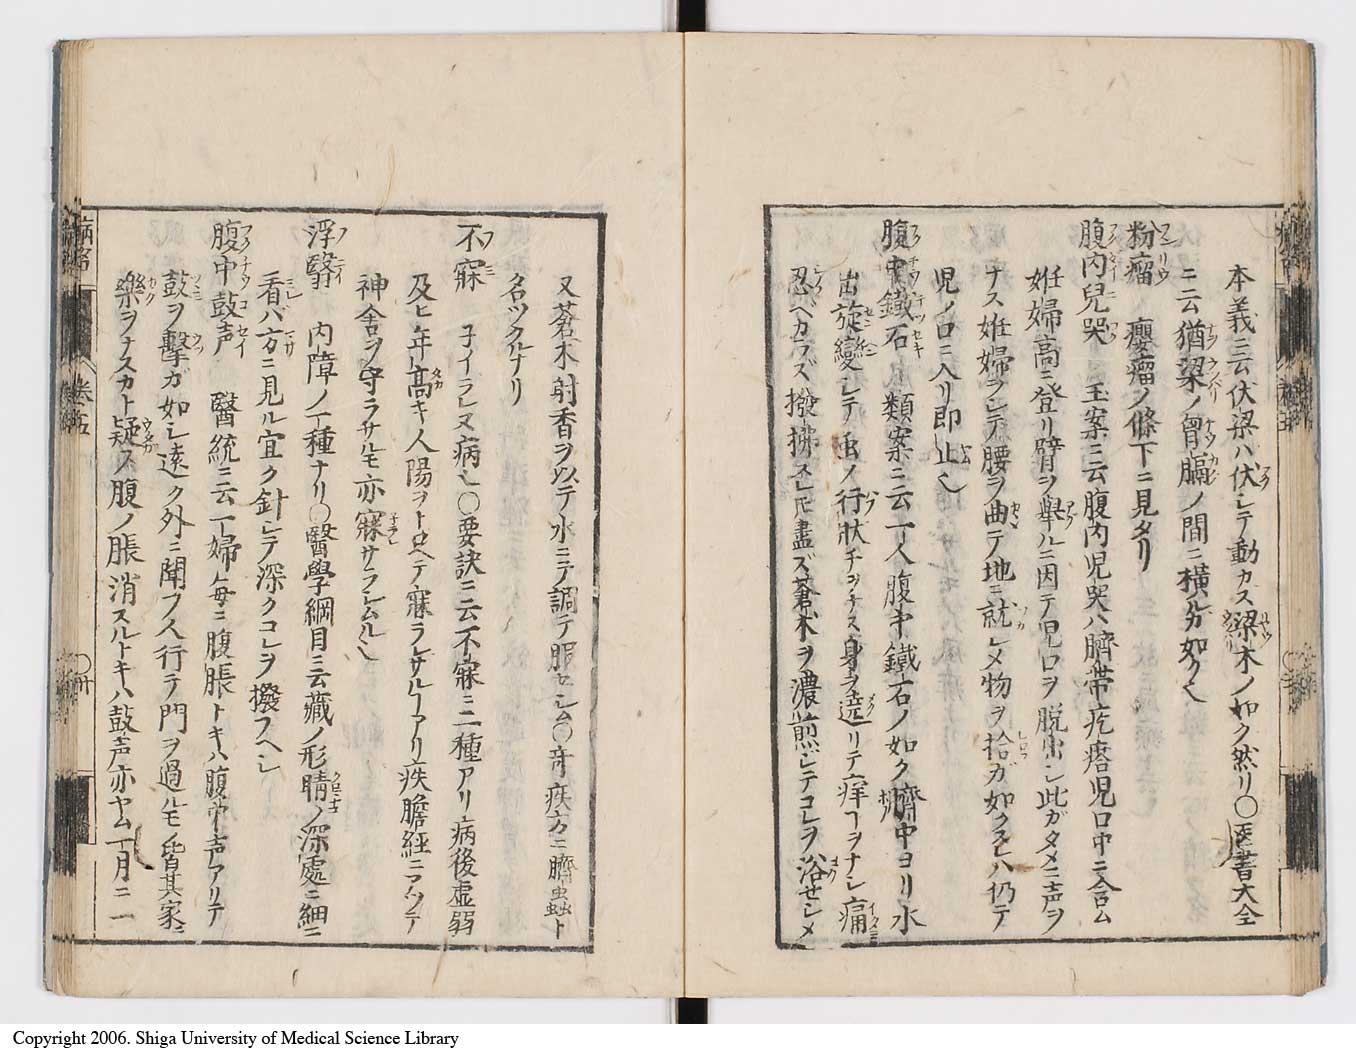 本義ニ云伏梁ハ伏シテ動カス梁木ノ如ク然リ〇医書大全
ニ云猶梁ノ胷膈ノ間ニ横ルガ如ク也
粉瘤 癭瘤ノ條下ニ見タリ
腹内兒哭 玉案ニ云腹内児哭ハ臍帯疙瘩児口中ニ含ム
妊婦高ニ登リ臂ヲ舉ルニ因テ児口ヲ脱出シ此ガタメニ声ヲ
ナス妊婦ヲシテ腰ヲ曲テ地ニ就シメ物ヲ拾ガ如クスレハ仍テ
児ノ口ニ入リ即止也
腹中鐵石 類案ニ云一人腹中鐵石ノ如ク臍中ヨリ水
出旋變シテ虫ノ行状チヨチヨス身ヲ遶リテ痒ヿヲナシ痛
忍ベカラズ撥拂スレドモ盡ズ蒼朮ヲ濃煎シテコレヲ浴セシメ
又蒼朮射香ヲ以テ水ニテ調テ服セシム〇奇疾方ニ臍蟲ト
名ツクルナリ
不寐 子イラレヌ病也〇要訣ニ云不寐ニ二種アリ病後虚弱
及ヒ年高キ人陽ヲトロヘテ寐ラレサルヿアリ痰膽經ニアツテ
神舎ヲ守ラサルモ亦寐サラシムル也
浮翳 内障ノ一種ナリ〇醫學綱目ニ云藏ノ形睛ノ深處ニ細ニ
看バ方ニ見ル宜ク針シテ深クコレヲ撥フヘシ
腹中鼓声 醫統ニ云一婦毎ニ腹脹トキハ腹中声アリテ
鼓ヲ撃ガ如シ遠ク外ニ聞フ人行テ門ヲ過ルモノ皆其家ニ
樂ヲナスカト疑フ腹ノ脹消スルトキハ鼓声亦ヤム一月ニ一
病名
巻五
〇廿
Copyright 2006. Shiga University of Medical Science Library